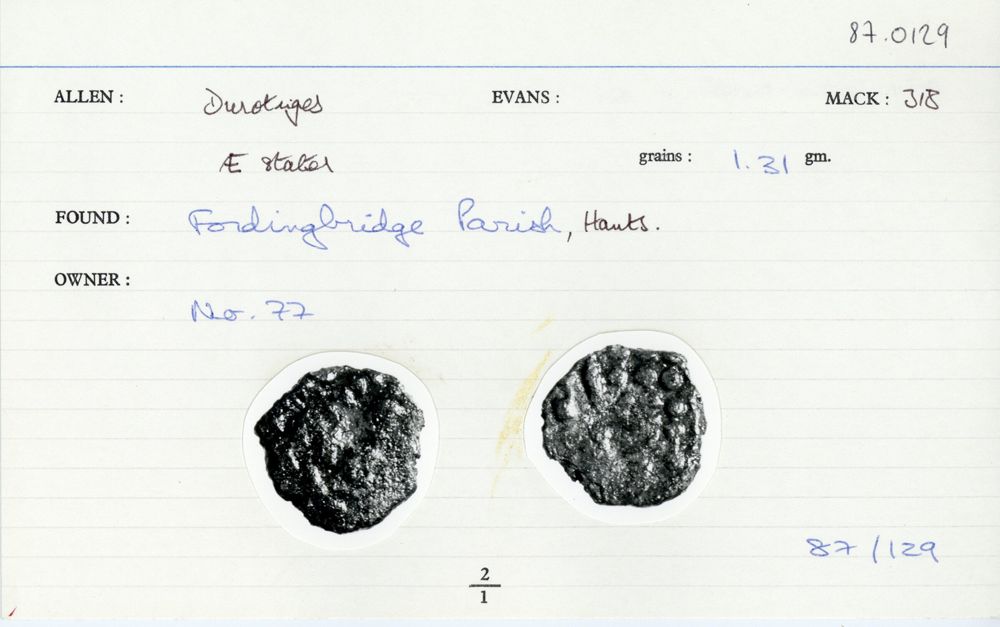 87.0129
ALLEN : Durotriges EVANS : MACK : 318
Æ stater grains : 1.31 gm.
FOUND : Fordingbridge Parish, Hants.
OWNER :
No. 77
87/129
2
1